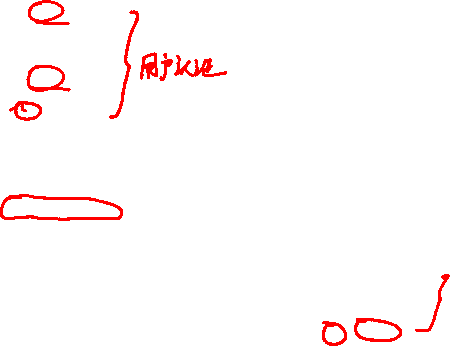 用户认证